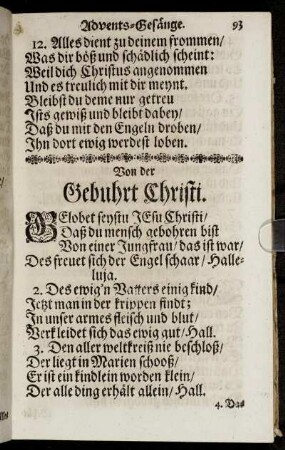 Advents-Gesänge. 93
12. Alles dient zu deinem frommen/
Was dir böß und schädlich scheint:
Weil dich Christus angenommen
Und es treulich mit dir meynt.
Bleibst du deme nur getreu
Ists gewiß und bleibt dabey/
Daß du mit den Engeln droben/
Ihn dort ewig werdest loben.
Von der
Gebuhrt Christi.
GElobet seystu JEsu Christi/
Daß du mensch gebohren bist
Von einer Jungfrau/ das ist war/
Des freuet sich der Engel schaar/ Halle-
luja.
2. Des ewig'n Vatters einig kind/
Jetzt man in der krippen findt;
In unser armes fleisch und blut/
Verkleidet sich das ewig gut/ Hall.
3. Den aller weltkreiß nie beschloß/
Der liegt in Marien schooß/
Er ist ein kindlein worden klein/
Der alle ding erhält allein/ Hall.
4. Das